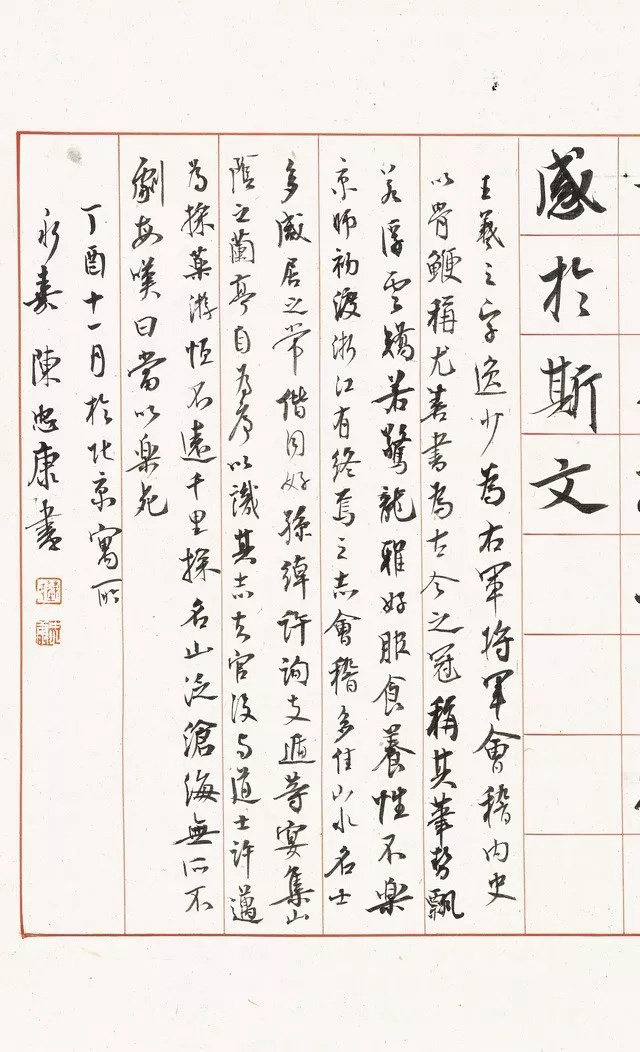 感於斯文
王羲之字逸少為右軍將軍會稽内史
以骨鯁稱尤善書為古今之冠稱其筆勢飄
若浮雲矯若驚龍雅好服食養性不樂
京師初渡浙江有終焉之志會稽多佳山水名士
多咸居之常偕同好孫綽許詢支遁等宴集山
陰之蘭亭自為序以識其志去官後與道士許邁
為採藥游恒不遠千里採名山泛滄海無所不
劇每嘆曰當以樂死
丁酉十一月於北京寓所
永嘉陳忠康書